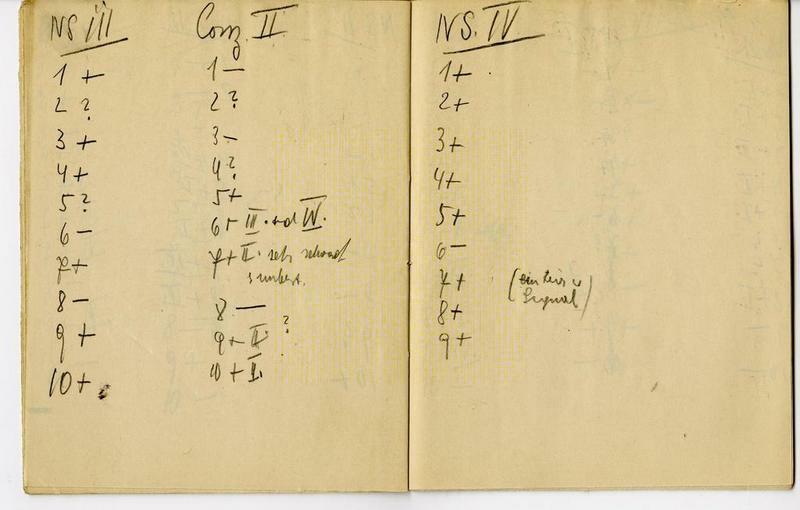 NS III
1 +
2 ?
3 +
4 +
5 ?
6 —
7 +
8 —
9 +
10 +
II
1 —
2 ?
3 —
4 ?
5 +
6 + III. IV.
7 + II.
8 —
9 + II ?
10 + II.
NS. IV
1 +
2 +
3 +
4 +
5 +
6 —
7 +
Signal)
8 +
9 +